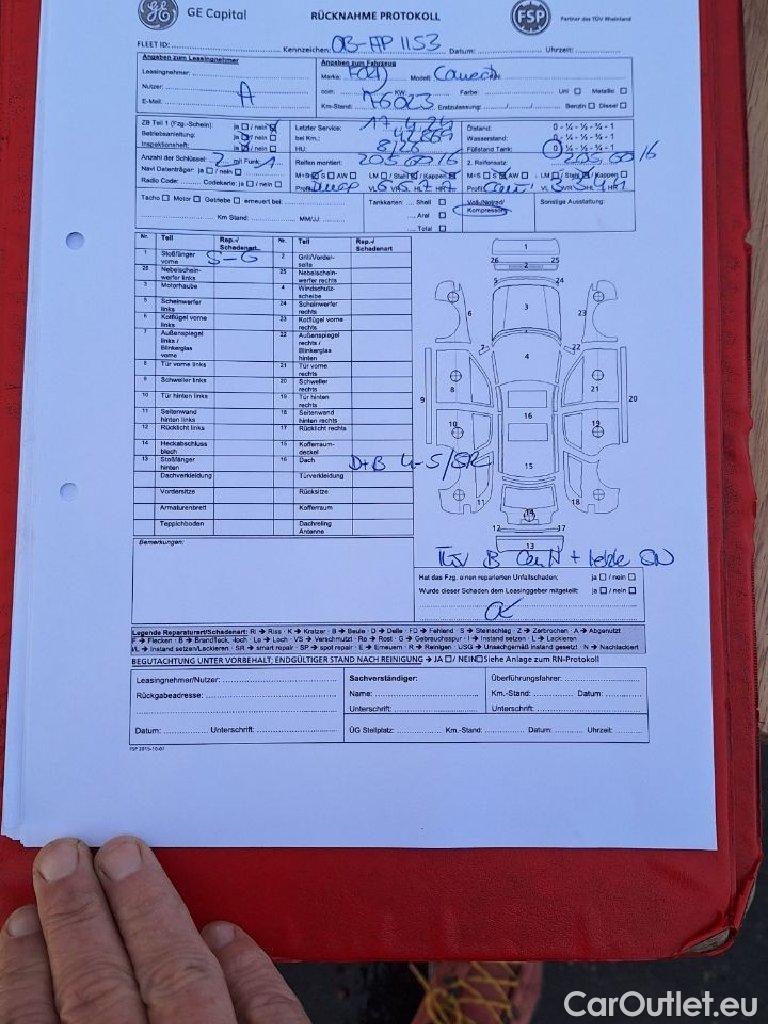 GE Capital
RÜCKNAHME PROTOKOLL
FSP
Partner des TÜV Rheinland
FLEET ID: Kennzeichen: OB-AP 1153 Datum: Uhrzeit:
Angaben zum Leasingnehmer
Leasingnehmer:
Nutzer:
E-Mail:
A
Angaben zum Fahrzeug
Marke: FORD Modell: Connect
ccm: KW: Farbe: Uni □ Metallic □
Km-Stand: 76023 Erstzulassung: Benzin □ Diesel □
ZB Teil 1 (Fzg.-Schein): ja □ / nein □
Betriebsanleitung: ja □ / nein □
Inspektionsheft: ja □ / nein □
Letzter Service: 17.4.24
bei Km.:
HU: 8/26
Ölstand: 0 = ¼ = ½ = ¾ = 1
Wasserstand: 0 - ¼ - ½ - ¾ - 1
Füllstand Tank: 0 - ¼ - ½ - ¾ - 1
Anzahl der Schlüssel: 2 mit Funk: 1
Navi Datenträger: ja □ / nein □
Radio Code: Codekarte: ja □ / nein □
Reifen montiert: 205 60 16
M+S □ S □ AW □ LM □ / Stahl □ / Kappen □
2. Reifensatz: 205 60 16
M+S □ S □ AW □ LM □ / Stahl □ / Kappen □
Tacho □ Motor □ Getriebe □ erneuert bei:
Km Stand: MM/JJ:
Tankkarten: Shell □
Aral □
Total □
Voll-/Notrad/
Kompressor
Sonstige Ausstattung:
Nr. Teil Rep.-/ Schadenart Nr. Teil Rep.-/ Schadenart
1 Stoßfänger vorne S-G 2 Grill/Vorderseite
26 Nebelscheinwerfer links 25 Nebelscheinwerfer rechts
3 Motorhaube 4 Windschutzscheibe
5 Scheinwerfer links 24 Scheinwerfer rechts
6 Kotflügel vorne links 23 Kotflügel vorne rechts
7 Außenspiegel links / Blinkerglas vorne 22 Außenspiegel rechts / Blinkerglas hinten
8 Tür vorne links 21 Tür vorne rechts
9 Schweller links 20 Schweller rechts
10 Tür hinten links 19 Tür hinten rechts
11 Seitenwand hinten links 18 Seitenwand hinten rechts
12 Rücklicht links 17 Rücklicht rechts
14 Heckabschluss blech 15 Kofferraumdeckel
13 Stoßfänger hinten 16 Dach D+B 4-5/SR
Dachverkleidung Türverkleidung
Vordersitze Rücksitze
Armaturenbrett Kofferraum
Teppichboden Dachreling Antenne
1
26 25
2
5 24
6 3 23
7 22
4
8 21
9 20
10 16 19
15
11 18
14
12 17
13
Bemerkungen:
Hat das Fzg. einen reparierten Unfallschaden: ja □ / nein □
Wurde dieser Schaden dem Leasinggeber mitgeteilt: ja □ / nein □
Legende Reparaturart/Schadenart: Ri → Riss · K → Kratzer · B → Beule · D → Delle · FD → Fehlend · S → Steinschlag · Z → Zerbrochen · A → Abgenutzt
F → Flecken · B → Brandfleck, -loch · Lo → Loch · VS → Verschmutzt · Ro → Rost · G → Gebrauchsspur · I → Instand setzen · L → Lackieren
I/L → Instand setzen/Lackieren · SR → smart repair · SP → spot repair · E → Erneuern · R → Reinigen · USG → Unsachgemäß instand gesetzt · N → Nachlackiert
BEGUTACHTUNG UNTER VORBEHALT; ENDGÜLTIGER STAND NACH REINIGUNG → JA □ / NEIN □ siehe Anlage zum RN-Protokoll
Leasingnehmer/Nutzer:
Rückgabeadresse:
Datum: Unterschrift:
Sachverständiger:
Name:
Unterschrift:
Überführungsfahrer:
Km.-Stand: Datum:
Unterschrift:
ÜG Stellplatz: Km.-Stand: Datum: Uhrzeit:
FSP 2015-10-07
CarOutlet.eu